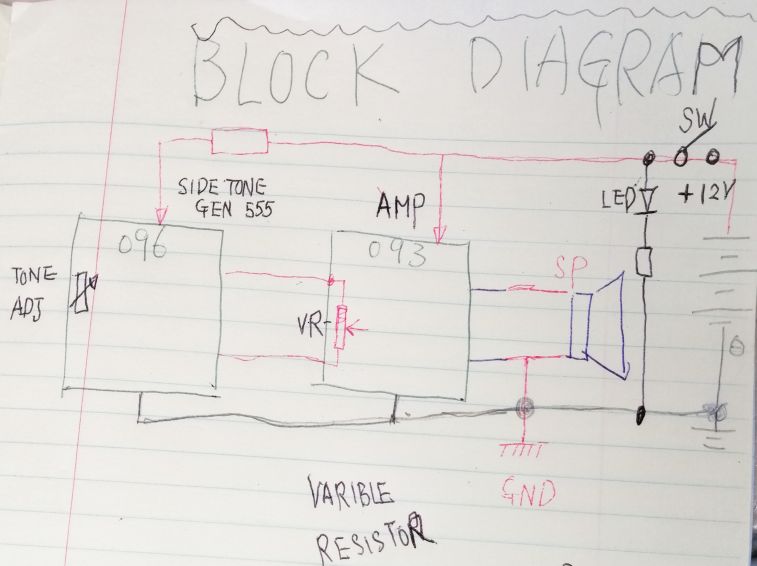 BLOCK DIAGRAM
SW
SIDE TONE
GEN 555
AMP
LED
+12V
096
093
TONE
ADJ
SP
VR
GND
VARIBLE
RESISTOR